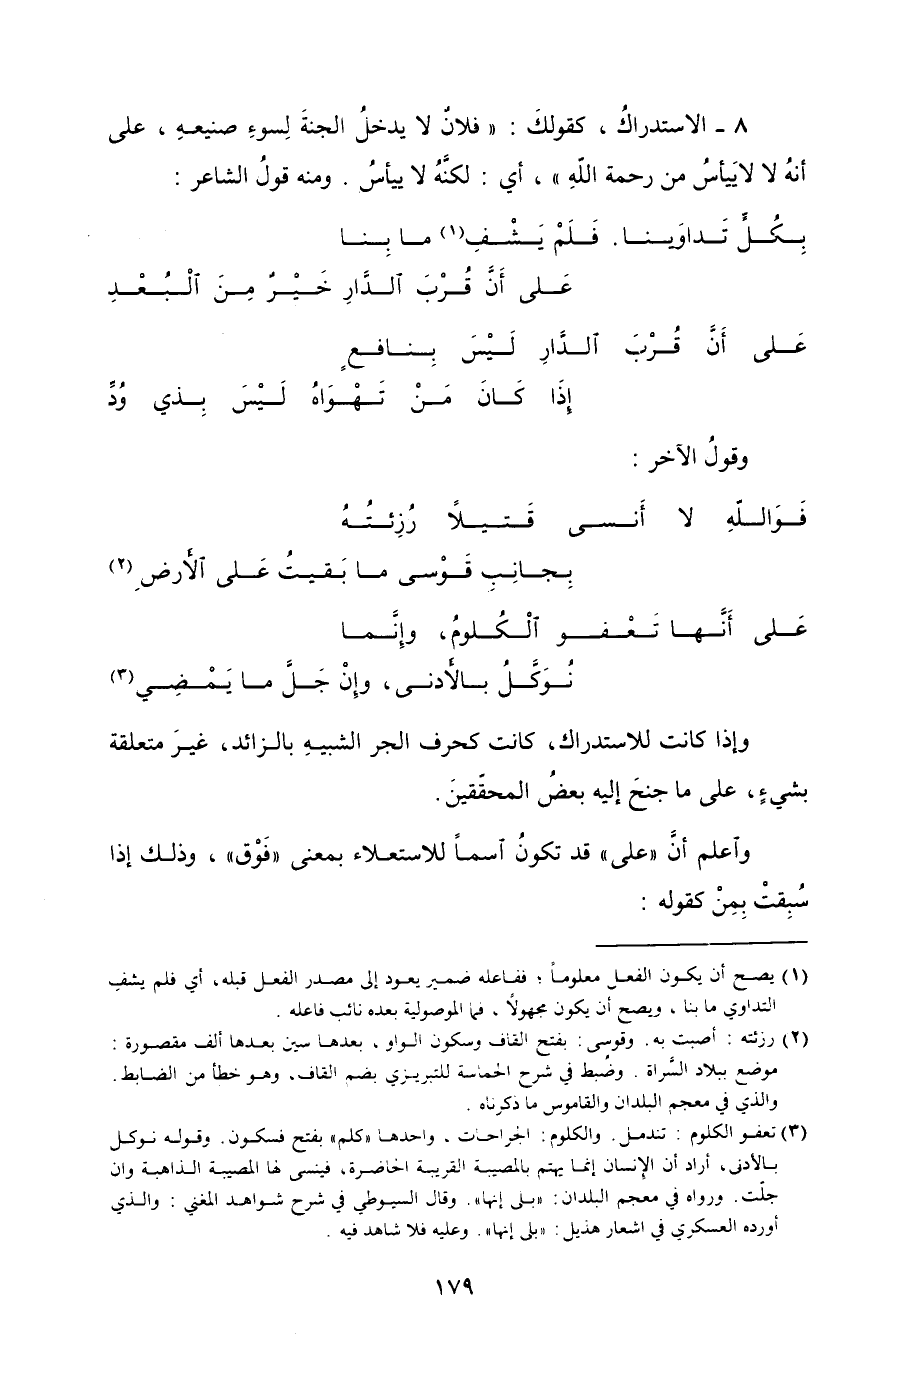 ٨ - الاستدراكُ ، كقولكَ : « فلانٌ لا يدخلُ الجنةَ لِسوءِ صنيعهِ ، على
أنهُ لا لايَيأسُ من رحمة اللّهِ » ، أي : لكنَّهُ لا ييأسُ . ومنه قولُ الشاعر :
بِكُلٍّ تَداوَيْنا. فَلَمْ يَشْفِ(١) ما بِنا
عَلى أَنَّ قُرْبَ ٱلدَّارِ خَيْرٌ مِنَ ٱلْبُعْدِ
عَلى أَنَّ قُرْبَ ٱلدَّارِ لَيْسَ بِنافعٍ
إِذَا كَانَ مَنْ تَهْوَاهُ لَيْسَ بِذي وُدِّ
وقولُ الآخر :
فَوَاللّهِ لا أَنسى قَتيلاً رُزِئتُهُ
بِجانِبِ قَوْسى ما بَقيتُ عَلى ٱلأَرضِ(٢)
عَلى أَنَّها تَعْفو ٱلْكُلومُ، وإنَّما
نُوَكَّلُ بالأَدنى، وإنْ جَلَّ ما يَمْضِي(٣)
وإذا كانت للاستدراك، كانت كحرف الجر الشبيهِ بالزائد، غيرَ متعلقة
بشيءٍ، على ما جنحَ إليه بعضُ المحقّقينَ .
وٱعلم أنَّ «على» قد تكونُ ٱسماً للاستعلاء بمعنى «فَوْق» ، وذلك إذا
سُبِقتْ بِمِنْ كقوله :
(١) يصح أن يكون الفعل معلوماً ؛ ففاعله ضمير يعود إلى مصدر الفعل قبله، أي فلم يشف
التداوي ما بنا ، ويصح أن يكون مجهولاً ، فما الموصولية بعده نائب فاعله .
(٢) رزئته : أصبت به. وقوسى : بفتح القاف وسكون الواو ، بعدها سين بعدها ألف مقصورة :
موضع ببلاد السَّراة . وضُبط في شرح الحماسة للتبريزي بضم القاف، وهو خطأ من الضابط.
والذي في معجم البلدان والقاموس ما ذكرناه .
(٣) تعفو الكلوم : تندمل. والكلوم : الجراحات ، واحدها «كلم» بفتح فسكون. وقوله نوكل
بالأدنى، أراد أن الإنسان إنما يهتم بالمصيبة القريبة الحاضرة، فينسى لها المصيبة الذاهبة وان
جلّت. ورواه في معجم البلدان : «بلى إنها». وقال السيوطي في شرح شواهد المغني : والذي
أورده العسكري في اشعار هذيل : «بلى إنها». وعليه فلا شاهد فيه .
١٧٩